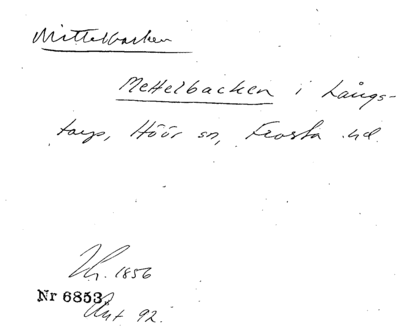 Mittelbacken
Mettelbacken i Långs-
torp, Höör sn, Frosta hd.
1856
Nr 6853.
Ant 92.